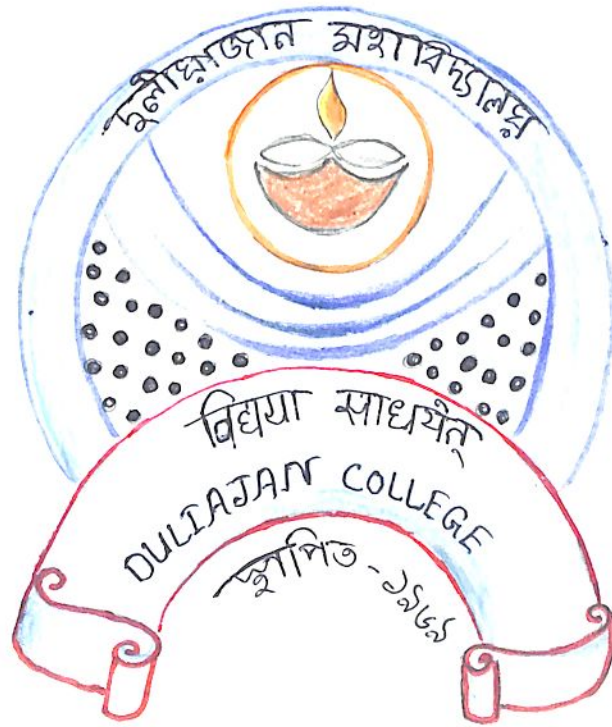 দুলীয়াজান মহাবিদ্যালয়
विद्यया साधयेत्
DULIAJAN COLLEGE
স্থাপিত - ১৯৬৯